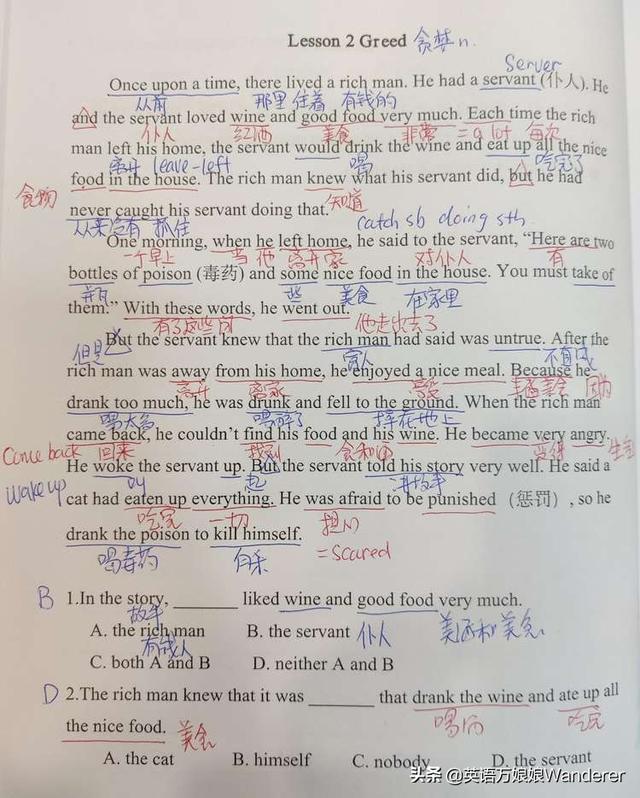 Lesson 2 Greed 贪婪 n.
Server
Once upon a time, there lived a rich man. He had a servant (仆人). He
从前 那里 住着 有钱的
and the servant loved wine and good food very much. Each time the rich
仆人 红酒 美食 非常 = a lot 每次
man left his home, the servant would drink the wine and eat up all the nice
离开 leave-left 喝 吃完了
food in the house. The rich man knew what his servant did, but he had
食物
never caught his servant doing that. 知道
从来没有 抓住 catch sb doing sth
One morning, when he left home, he said to the servant, “Here are two
一个早上 当 他 离开家 对仆人 有
bottles of poison (毒药) and some nice food in the house. You must take of
并瓦 些 美食 在家里
them.” With these words, he went out.
有了这些 他走出去了
But the servant knew that the rich man had said was untrue. After the
但是 富人 不真
rich man was away from his home, he enjoyed a nice meal. Because he
离开 离家 享受 因为
drank too much, he was drunk and fell to the ground. When the rich man
喝太多 喝醉了 摔在地上
came back, he couldn’t find his food and his wine. He became very angry.
Come back 回来 找到 食和酒 变得 生气
He woke the servant up. But the servant told his story very well. He said a
Wake up 叫 起 讲故事
cat had eaten up everything. He was afraid to be punished (惩罚) , so he
吃完 一切 担心
drank the poison to kill himself. = scared
喝毒药 自杀
B 1.In the story, _______ liked wine and good food very much.
故事
A. the rich man B. the servant 仆人 美酒和美食
有钱人
C. both A and B D. neither A and B
D 2.The rich man knew that it was _______ that drank the wine and ate up all
喝酒 吃完
the nice food. 美食
A. the cat B. himself C. nobody D. the servant
头条 @英语万娘娘Wanderer